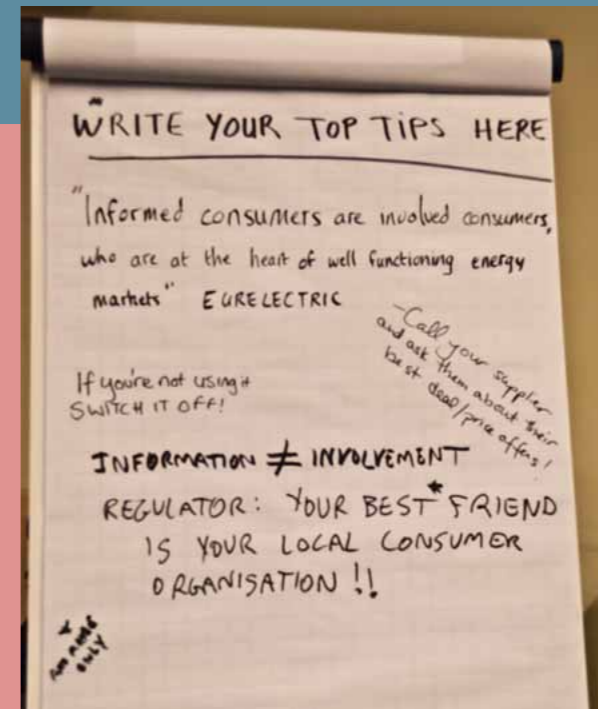 WRITE YOUR TOP TIPS HERE
"Informed consumers are involved consumers,
who are at the heart of well functioning energy
markets" EURELECTRIC
-Call your supplier
and ask them about their
best deal/price offers!
If you're not using it
SWITCH IT OFF!
INFORMATION ≠ INVOLVEMENT
REGULATOR: YOUR BEST* FRIEND
IS YOUR LOCAL CONSUMER
ORGANISATION !!
ONLY